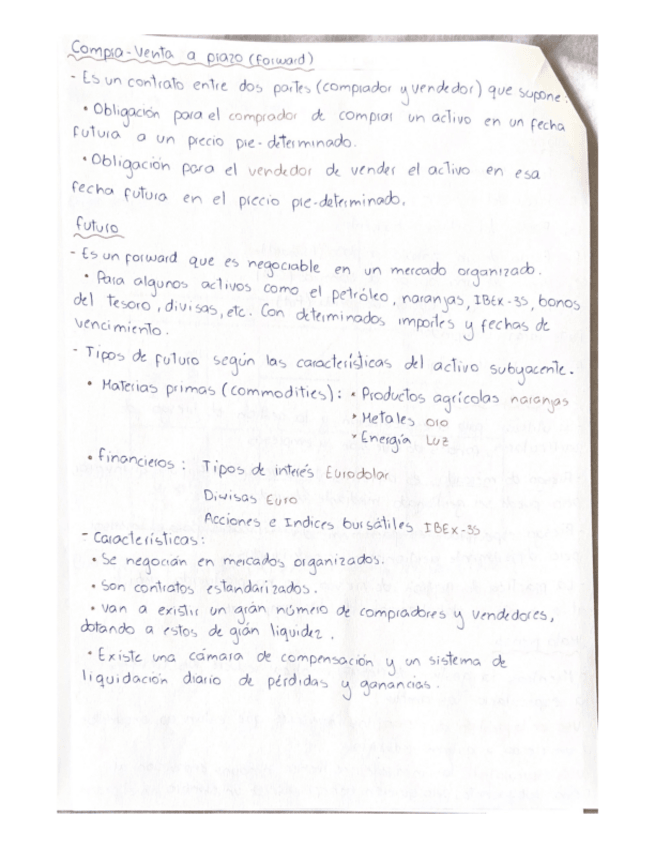 Compra-Venta a plazo (forward)
- Es un contrato entre dos partes (comprador y vendedor) que supone:
• Obligación para el comprador de comprar un activo en un fecha
futura a un precio pre-determinado.
• Obligación para el vendedor de vender el activo en esa
fecha futura en el precio pre-determinado.
futuro
- Es un forward que es negociable en un mercado organizado.
• Para algunos activos como el petróleo, naranjas, IBEX-35, bonos
del tesoro, divisas, etc. Con determinados importes y fechas de
vencimiento.
- Tipos de futuro según las características del activo subyacente.
• Materias primas (commodities): • Productos agrícolas naranjas
• Metales oro
• Energía Luz
• financieros: Tipos de interés Eurodolar
Divisas Euro
Acciones e Indices bursátiles IBEX-35
- Características:
• Se negocian en mercados organizados.
• Son contratos estandarizados.
• Van a existir un gran número de compradores y vendedores,
dotando a estos de gran liquidez.
• Existe una cámara de compensación y un sistema de
liquidación diario de pérdidas y ganancias.